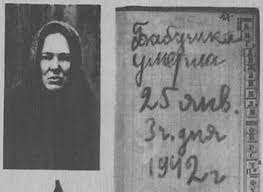 Бабушка
умерла
25 янв.
3ч. дня
1942 г